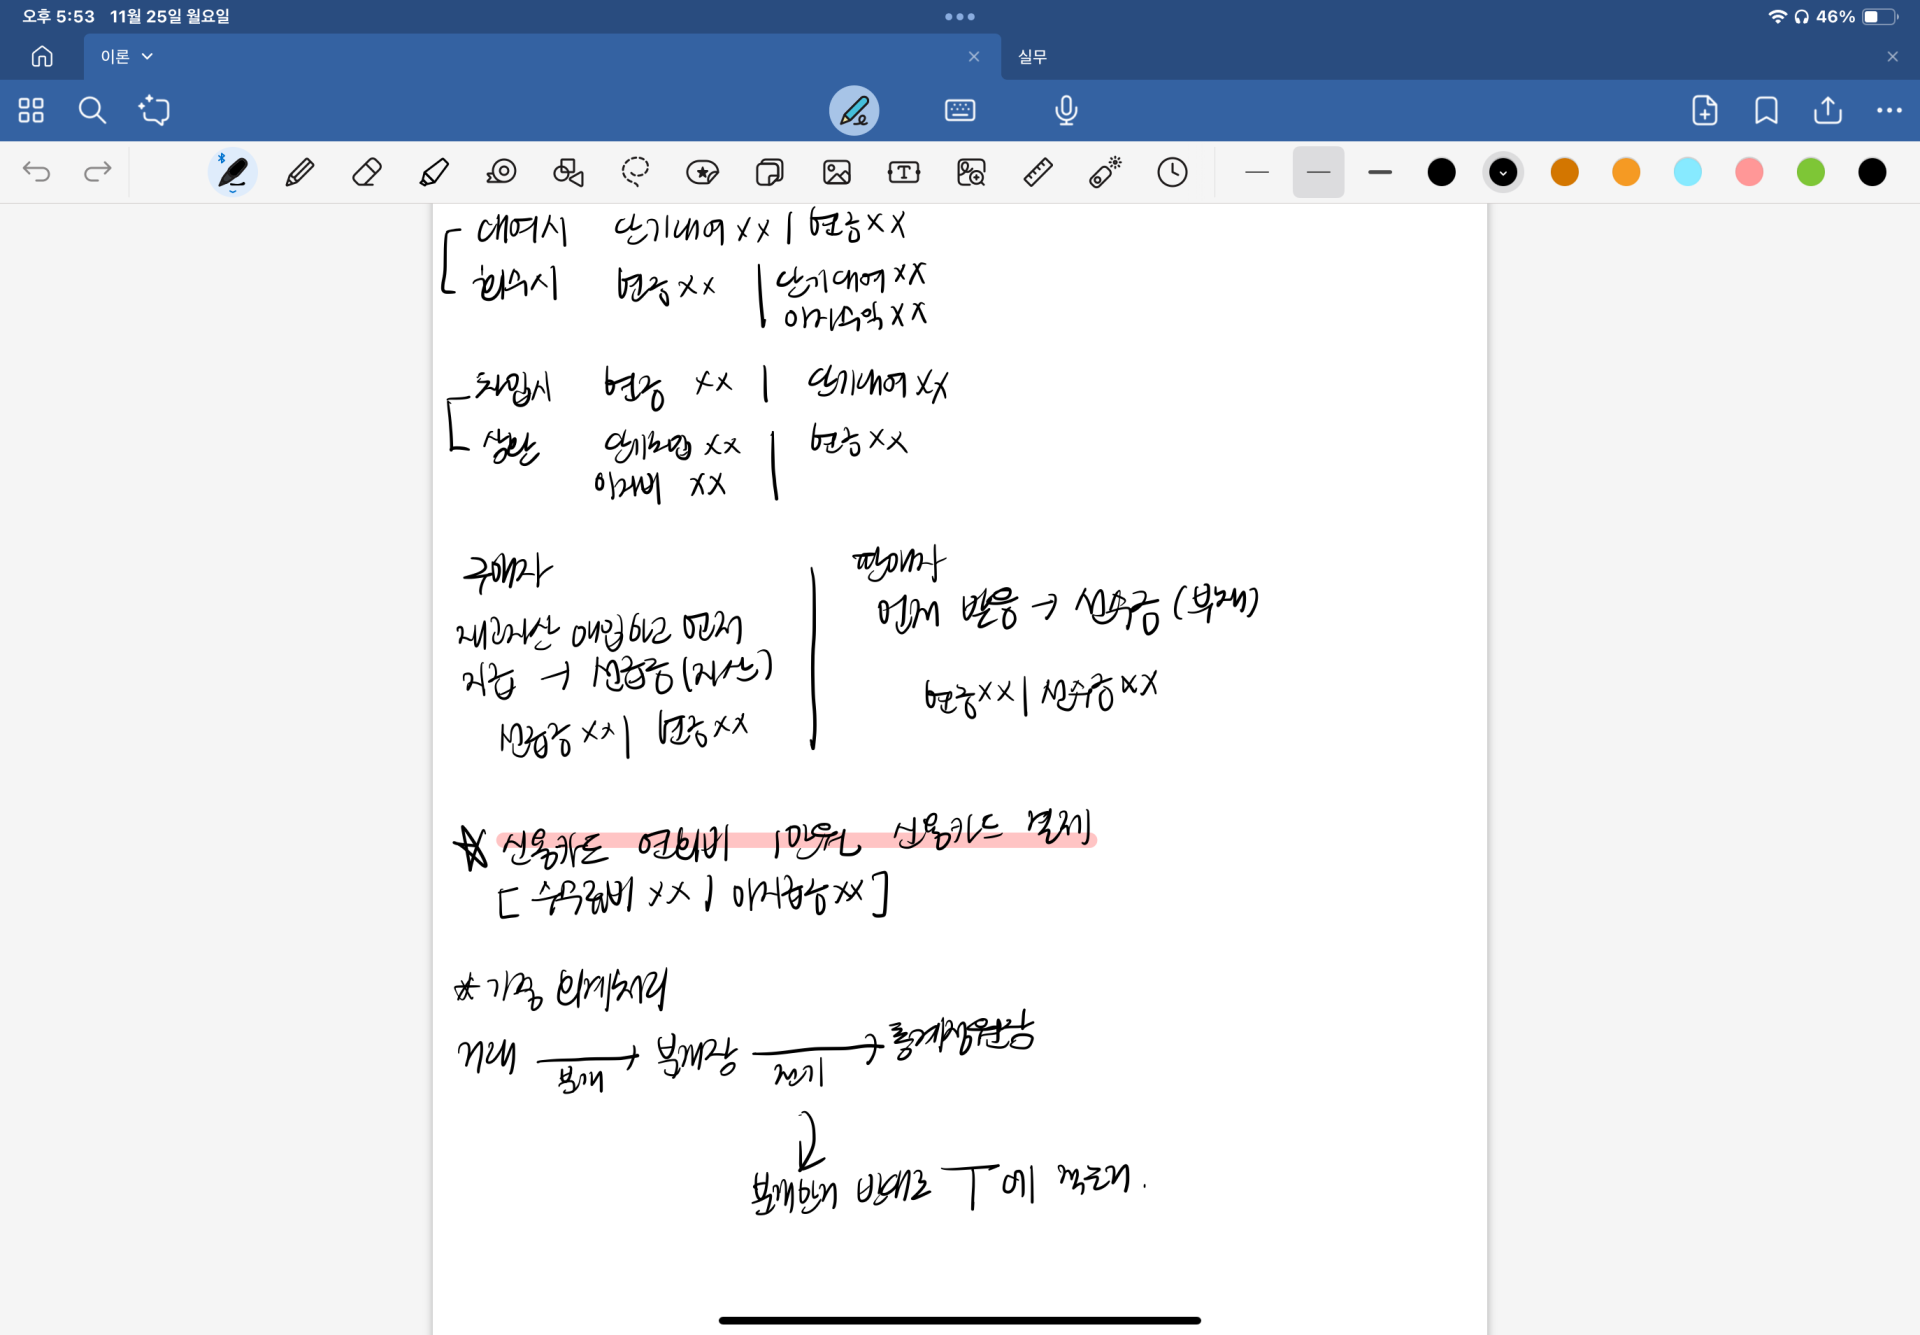 오후 5:53 11월 25일 월요일
46%
이론
실무
대여시 단기대여 xx | 현금 xx
회수시 현금 xx | 단기대여 xx
이자수익 xx
차입시 현금 xx | 단기대여 xx
상환 단기차입 xx | 현금 xx
이자비 xx
구매자
재고자산 매입하고 먼저
지급 → 선급금 (자산)
선급금 xx | 현금 xx
판매자
먼저 받음 → 선수금 (부채)
현금 xx | 선수금 xx
신용카드 연회비 1만원 신용카드 결제
[ 수수료비 xx | 미지급금 xx ]
* 기중 회계처리
거래 → 분개장 → 총계정원장
분개 전기
분개한거 반대로 T에 적는거.